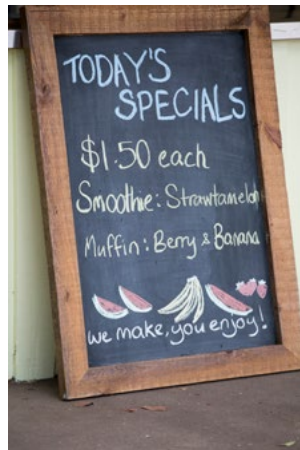 TODAY'S
SPECIALS
$1.50 each
Smoothie: Strawtamelon
Muffin: Berry & Banana
we make, you enjoy!